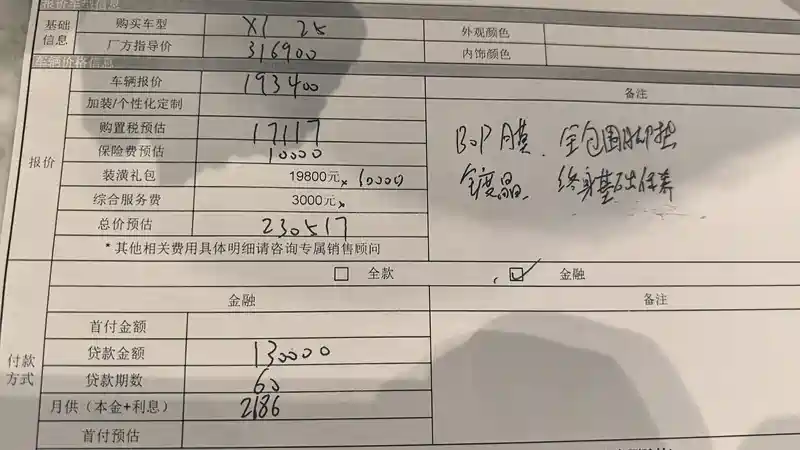 报价车型信息
基础信息
购买车型 X1 25 外观颜色
厂方指导价 316900 内饰颜色
车辆价格信息
报价
车辆报价 193400 备注
加装/个性化定制
购置税预估 17117
保险费预估 10000
装潢礼包 19800元× 10000
综合服务费 3000元×
总价预估 230517
* 其他相关费用具体明细请咨询专属销售顾问
BOP膜. 全包围脚垫
全镀晶. 终身基础保养
全款 金融
付款方式
金融 备注
首付金额
贷款金额 130000
贷款期数 60
月供（本金+利息） 2186
首付预估